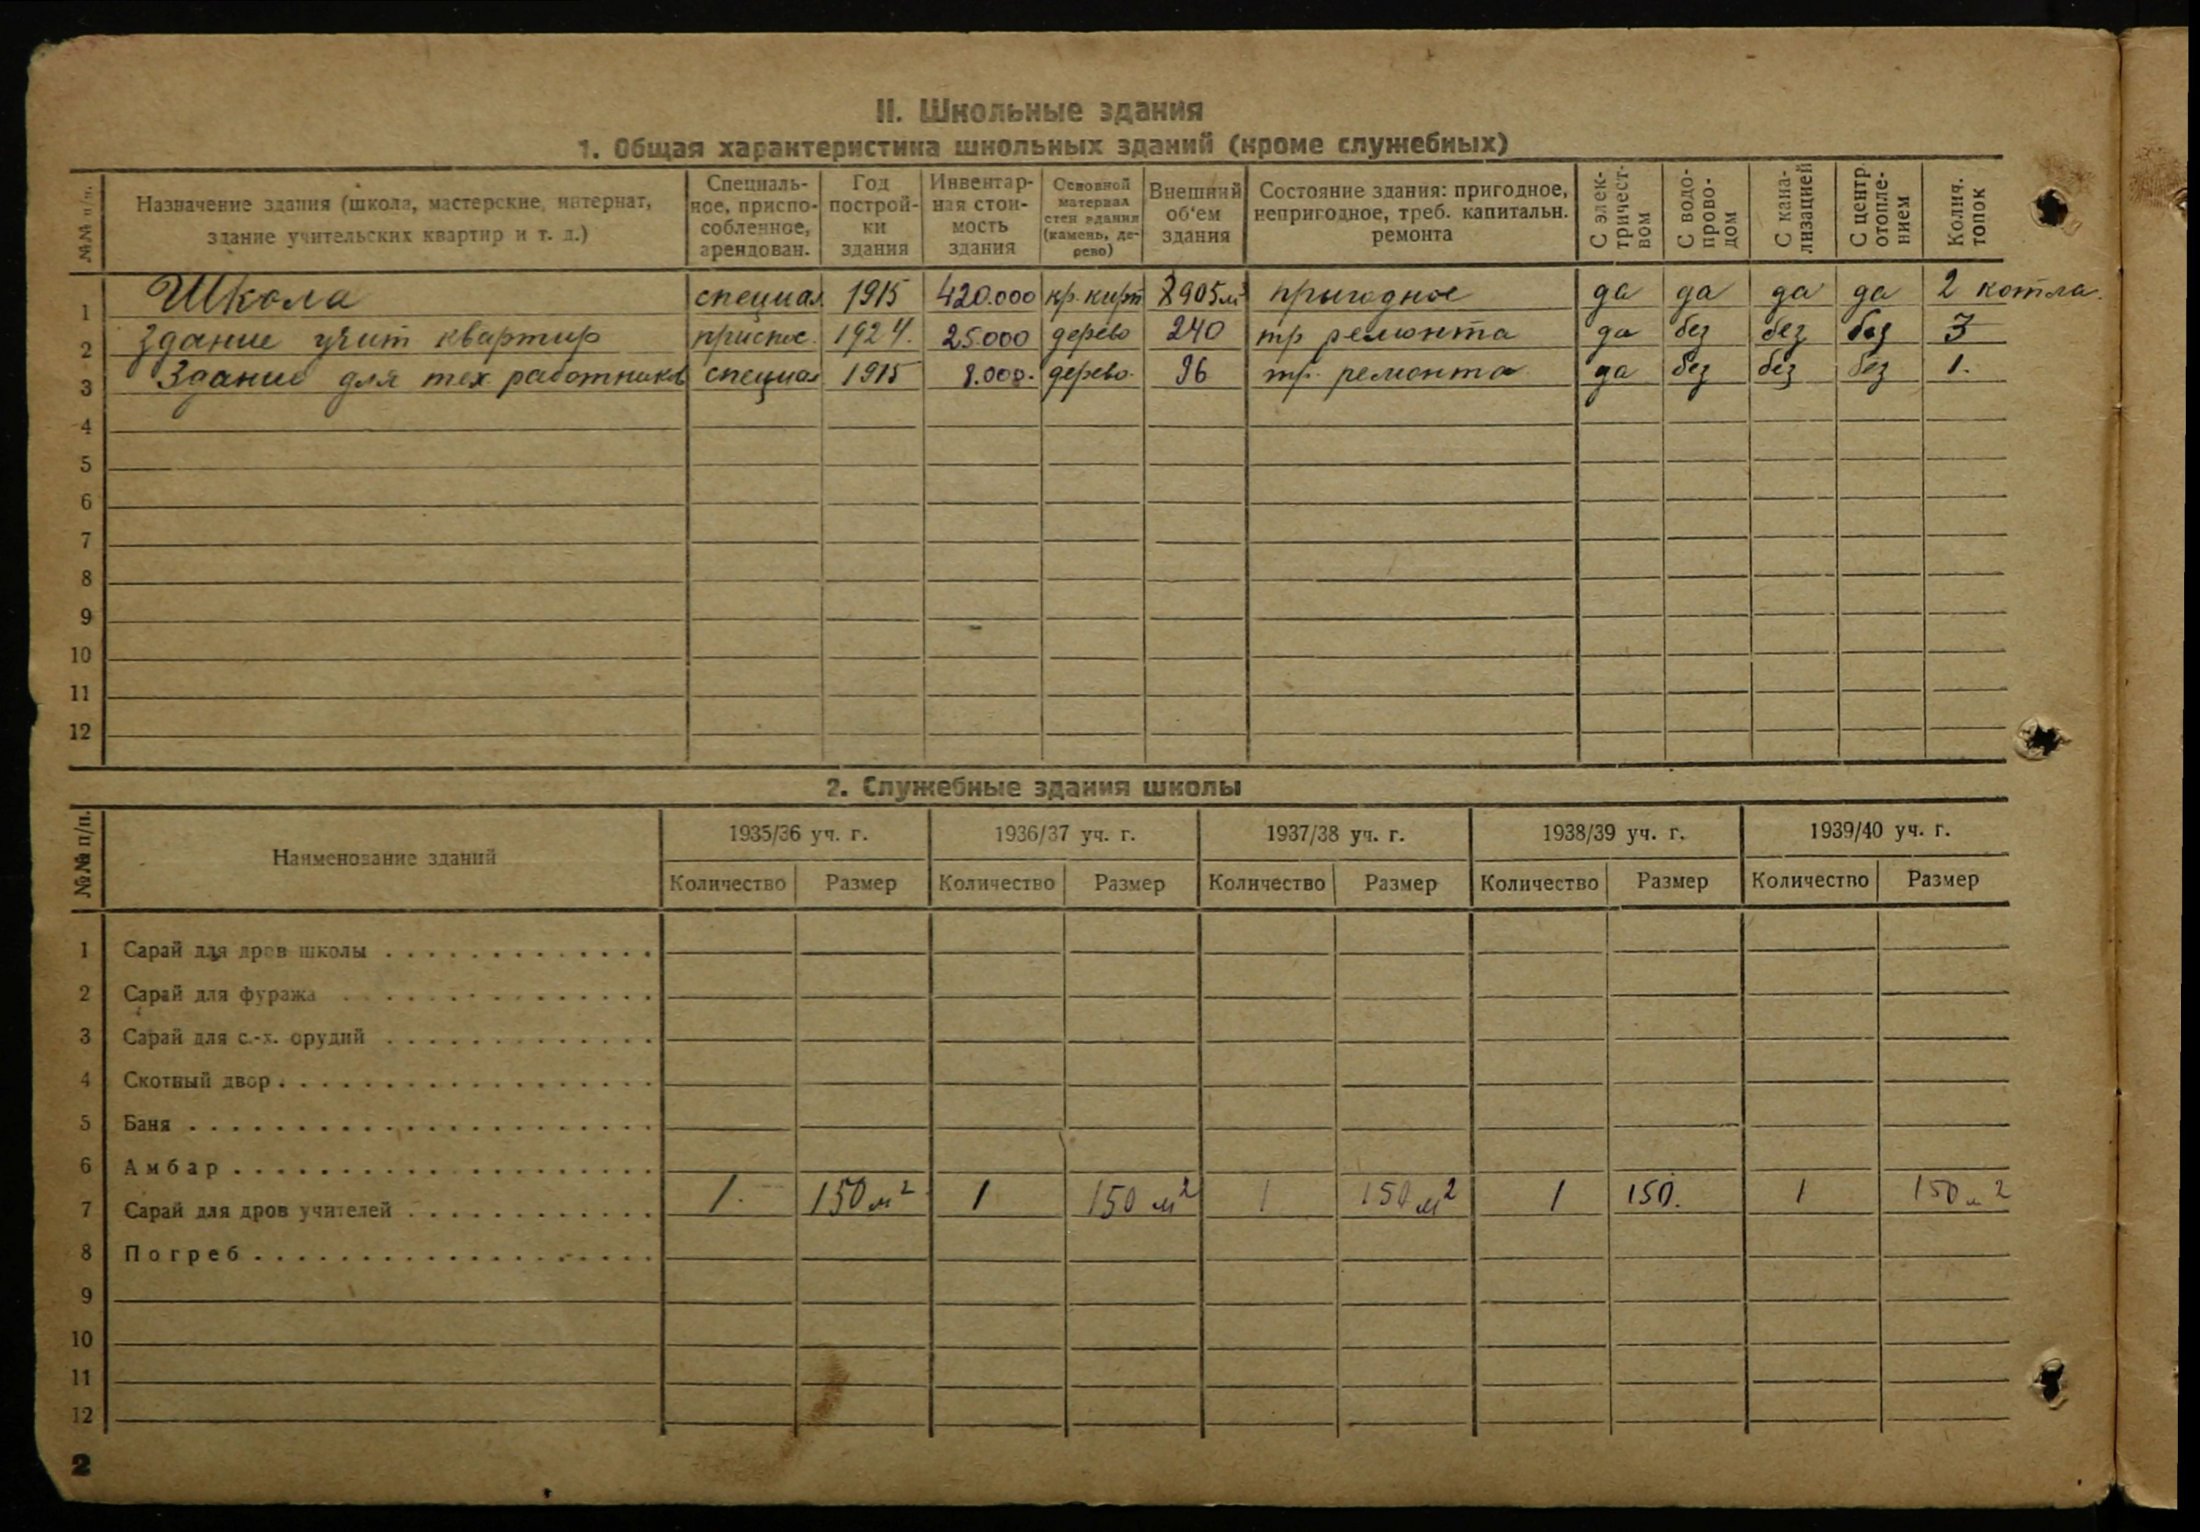 II. Школьные здания
1. Общая характеристика школьных зданий (кроме служебных)
№№ п/п. Назначение здания (школа, мастерские, интернат, здание учительских квартир и т. д.) Специальное, приспособленное, арендован. Год постройки здания Инвентарная стоимость здания Основной материал стен здания (камень, дерево) Внешний об‘ем здания Состояние здания: пригодное, непригодное, треб. капитальн. ремонта С электричеством С водопроводом С канализацией С центр. отоплением Колич. топок
1 Школа специал 1915 420.000 кр. кирп 905 м³ пригодное да да да да 2 котла.
2 Здание учит квартир приспос. 1924. 25.000 дерево 240 тр ремонта да без без без 3
3 Здание для тех работников специал 1915 8.000. дерево. 96 тр. ремонта да без без без 1.
4
5
6
7
8
9
10
11
12
2. Служебные здания школы
№№ п/п. Наименование зданий 1935/36 уч. г. 1936/37 уч. г. 1937/38 уч. г. 1938/39 уч. г. 1939/40 уч. г.
Количество Размер Количество Размер Количество Размер Количество Размер Количество Размер
1 Сарай для дров школы
2 Сарай для фуража
3 Сарай для с.-х. орудий
4 Скотный двор
5 Баня
6 Амбар
7 Сарай для дров учителей 1. 150 м² 1 150 м² 1 150 м² 1 150. 1 150 м²
8 Погреб
9
10
11
12
2